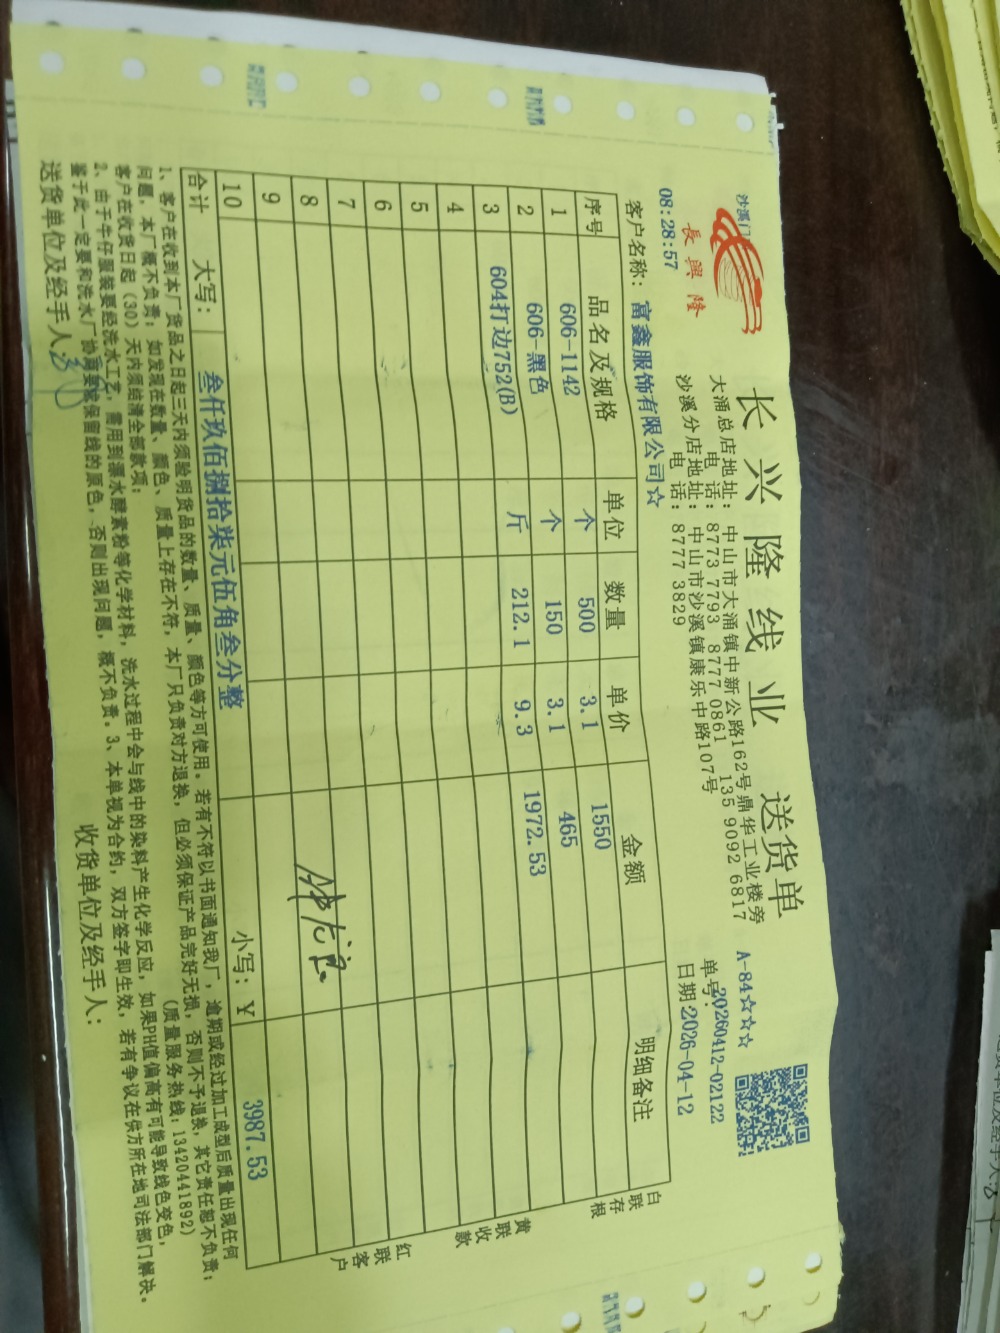 沙溪门
長興隆
08:28:57
长兴隆线业 送货单
大涌总店地址：中山市大涌镇中新公路162号鼎华工业楼旁
电 话：8773 7793 8777 0861 135 9092 6817
沙溪分店地址：中山市沙溪镇康乐中路107号
电 话：8777 3829
A-84☆☆☆
单号:20260412-02122
日期:2026-04-12
客户名称：富鑫服饰有限公司☆
序号 品名及规格 单位 数量 单价 金额 明细备注
1 606-1142 个 500 3.1 1550
2 606-黑色 个 150 3.1 465
3 604打边752(B) 斤 212.1 9.3 1972.53
4
5
6
7
8
9
10
合计 大写：叁仟玖佰捌拾柒元伍角叁分整 小写：¥ 3987.53
白联存根
黄联收款
红联客户
1、客户在收到本厂货品之日起三天内须验明货品的数量、质量、颜色等方可使用。若有不符以书面通知我厂，逾期或经过加工成型后质量出现任何
问题，本厂概不负责；如发现在数量、颜色、质量上存在不符，本厂只负责对方退换，但必须保证产品完好无损，否则不予退换，其它责任恕不负责；
客户在收货日起（30）天内须结清全部款项； （质量服务热线：13420441892）
2、由于牛仔服装要经洗水工艺，需用到漂水酵素粉等化学材料，洗水过程中会与线中的染料产生化学反应，如果PH值偏高有可能导致线色变色，
鉴于此一定要和洗水厂协商要求保留线的原色，否则出现问题，概不负责。3、本单视为合约，双方签字即生效，若有争议在供方所在地司法部门解决。
送货单位及经手人： 收货单位及经手人：